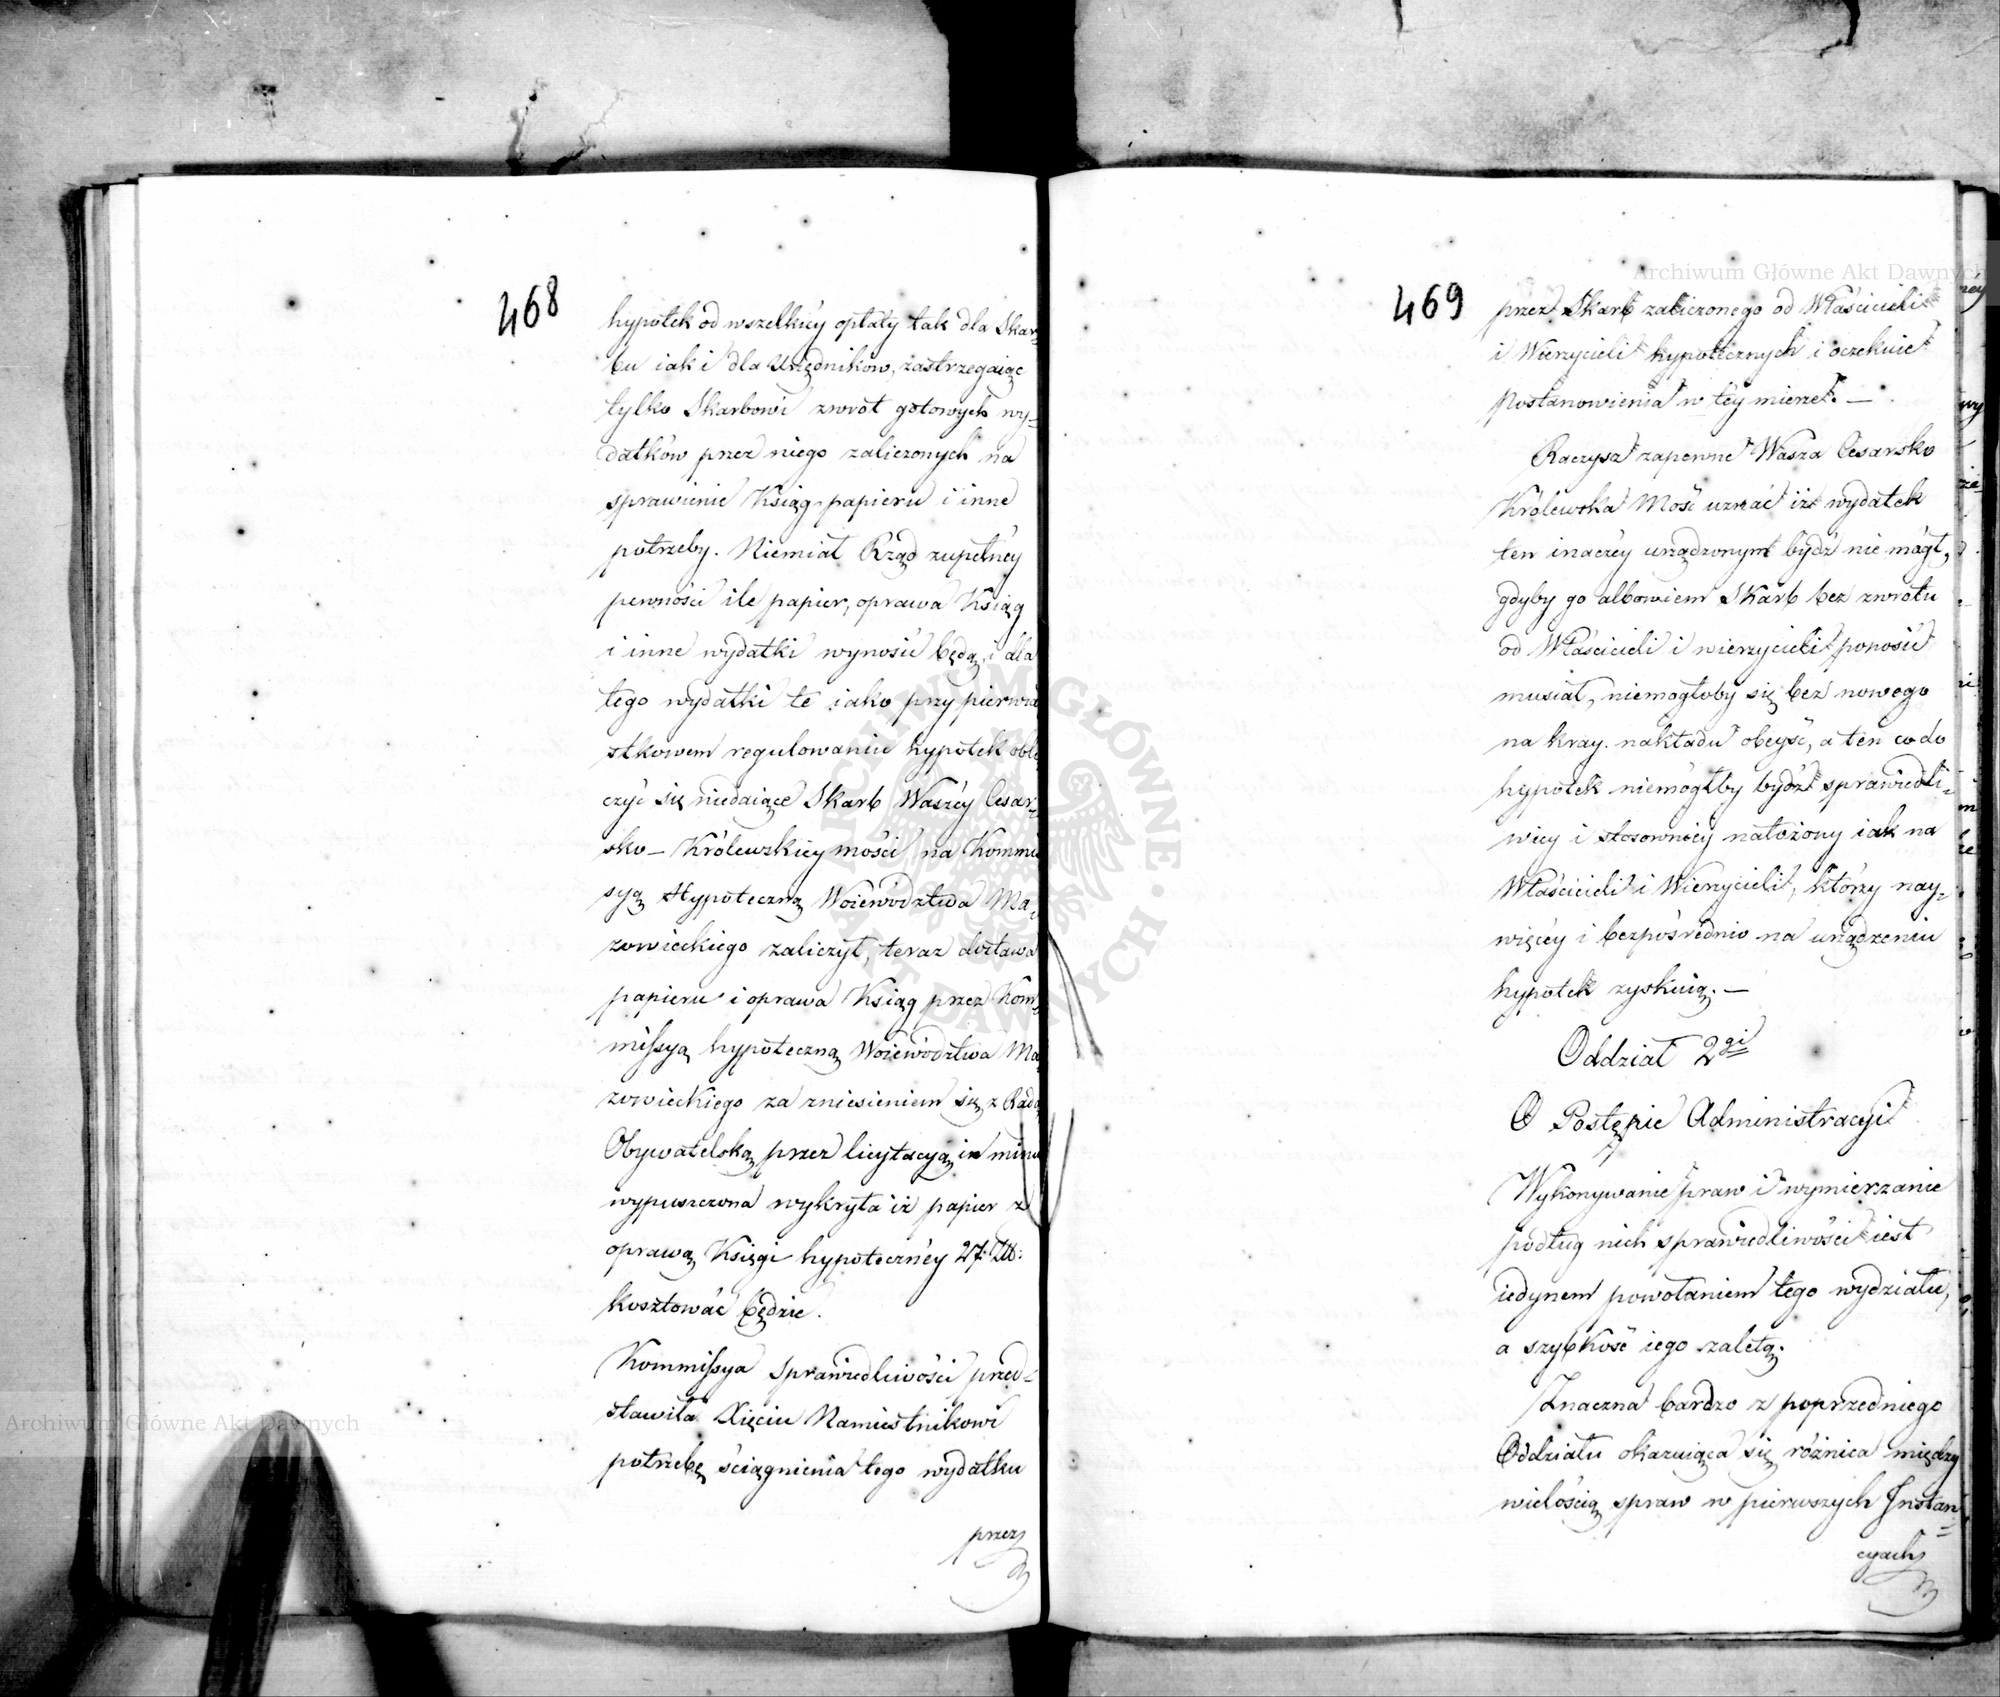 468
hypotek od wszelkiéy opłaty tak dla Skar=
bu iak i dla Urzędników, zastrzegaiąc
tylko Skarbowi zwrot gotowych wy=
datków przez niego zaliczonych na
sprawienie Ksiąg papieru i inne
potrzeby. Niemiał Rząd zupełnéy
pewności ile papier, oprawa Ksiąg
i inne wydatki wynosić będą, i dla
tego wydatki te iako przy pierwia
stkowem regulowaniu hypotek obli
czyć się niedaiące Skarb Waszéy Cesar=
sko – Królewskiey mości na Kommis
syą Hypoteczną Woiewództwa Ma=
zowieckiego zaliczył, teraz dostawa
papieru i oprawa Ksiąg przez Kom=
missyą hypoteczną Woiewództwa Ma=
zowieckiego za zniesieniem się z Radą
Obywatelską przez licytacyą in minus
wypuszczona wykryła iż papier z
oprawą Księgi hypotecznéy 27 Złł:
kosztować będzie.
Kommissya Sprawiedliwości przed=
stawiła Xięciu Namiestnikowi
potrzebę ściągnienia tego wydatku
przez
469
przez Skarb zaliczonego od Właścicieli
i Wierzycieli hypotecznych i oczekuie
postanowienia w téy mierze. —
Raczysz zapewne Wasza Cesarsko
Królewska Mość uznać iż wydatek
ten inaczéy urządzonym bydź nie mógł,
gdyby go albowiem Skarb bez zwrotu
od Właścicieli i wierzycieli ponosić
musiał, niemogłoby się bez nowego
na kray nakładu obeyść, a ten co do
hypotek niemógłby bydź sprawiedli=
wiey i stosownićy nałożony iak na
Właścicieli i Wierzycieli, którzy nay=
więcéy i bezpośrednio na urządzeniu
hypotek zyskuią. —
Oddział 2gi
O Postępie Administracyi
Wykonywanie praw i wymierzanie
podług nich sprawiedliwości iest
iedynem powołaniem tego wydziału,
a szybkość iego zaletą.
Znaczna bardzo z poprzedniego
Oddziału okazuiąca się różnica między
wielością spraw w pierwszych Instan=
cyach
Archiwum Główne Akt Dawnych
Archiwum Główne Akt Dawnych
ARCHIWUM GŁÓWNE AKT DAWNYCH